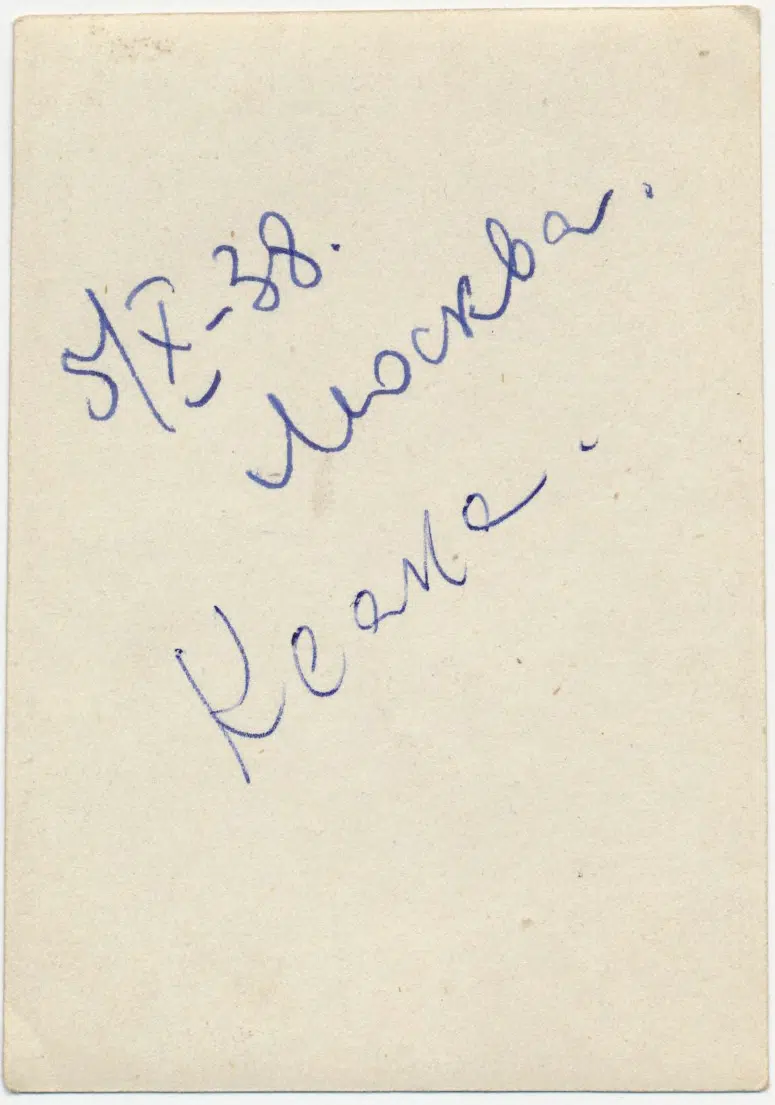 5/X-38.
Москва.
Ксана.